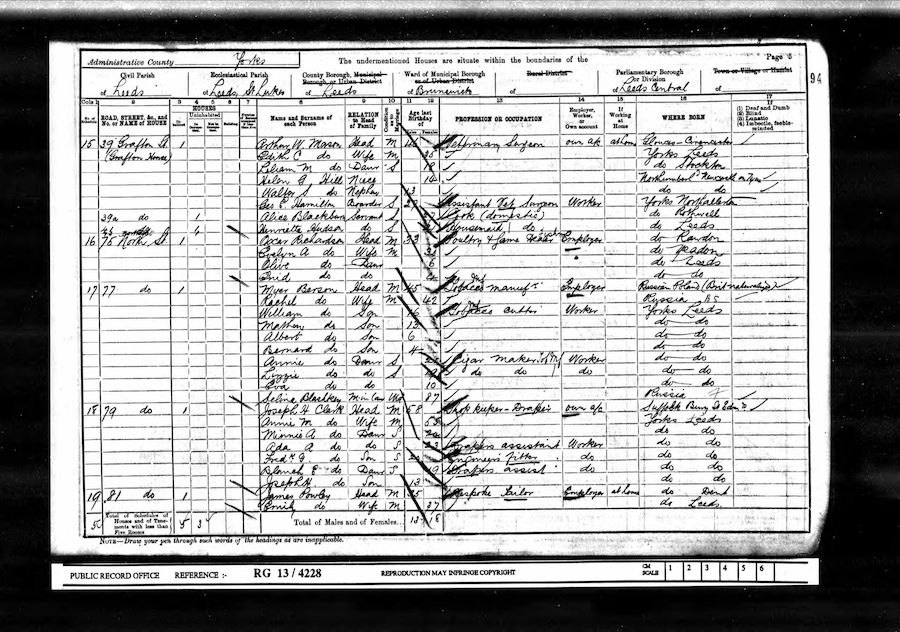 Administrative County Yorks The undermentioned Houses are situate within the boundaries of the Page 8
94
Civil Parish Ecclesiastical Parish County Borough, Municipal Borough, or Urban District Ward of Municipal Borough or of Urban District Rural District Parliamentary Borough or Division Town or Village or Hamlet
of Leeds of Leeds St Lukes of Leeds of Brunswick of of Leeds Central of
Cols 1 2 3 4 5 6 7 8 9 10 11 12 13 14 15 16 17
No. of Schedule ROAD, STREET, &c., and No. or NAME of HOUSE HOUSES Inhabited Uninhabited In Occupation Not in Occupation Building Name and Surname of each Person RELATION to Head of Family Condition as to Marriage Age last Birthday of Males Females PROFESSION OR OCCUPATION Employer, Worker, or Own account If Working at Home WHERE BORN (1) Deaf and Dumb (2) Blind (3) Lunatic (4) Imbecile, feeble-minded
15 39 Grafton St 1 Arthur W. Mason Head M 46 Veterinary Surgeon own a/c at home Glouces- Cirencester
(Grafton House) Edith C do Wife M Yorks Leeds
Lilian M do Daur S 19 do Stockton
Helen G Hill Niece 14 Northumberld Newcastle on Tyne
Walter S do Nephew 13 do do
Geo E. Hamilton Boarder S Assistant Vet Surgeon Worker Yorks Northallerton
39a do 1 Alice Blackburn Servant S Cook (domestic) do Rothwell
Henrietta Hudson do S Housemaid do do Leeds
16 75 North St 1 Oscar Richardson Head M 33 Poultry & Game Dealer Employer do Rawdon
Evelyn A do Wife M do Yeadon
Olive do Daur 6 do Leeds
Enid do do do do
17 77 do 1 Myer Berson Head M 45 Tobacco manufr Employer Russian Poland
Rachel do Wife M 42 Russia B S
William do Son 16 Tobacco cutter Worker Yorks Leeds
Mathew do Son 13 do do
Albert do Son 6 do do
Bernard do Son 4 do do
Annie do Daur S Cigar maker Worker do do
Lizzie do do S do do do do do
Eva do do 10 do do
Selina Blashkey Wid 87 Russia
18 79 do 1 Joseph H Clark Head M 58 Shopkeeper - Draper own a/c Suffolk Bury St Edm's
Annie M do Wife M 58 Yorks Leeds
Minnie A do Daur S do do
Ada A do do S 23 Drapers assistant Worker do do
Fredk G do Son S Engineers Fitter do do do
Blanch E do Daur S 19 Drapers assist do do do
Joseph H do Son 13 do do
19 81 do 1 James Powley Head M 35 Bespoke Tailor Employer at home do Dent
Emily do Wife M 37 do Leeds
5 Total of Schedules of Houses and of Tenements with less than Five Rooms 5 Total of Males and of Females... 13 18
NOTE—Draw your pen through such words of the headings as are inapplicable.
PUBLIC RECORD OFFICE REFERENCE :- RG 13/4228 REPRODUCTION MAY INFRINGE COPYRIGHT CM SCALE 1 2 3 4 5 6